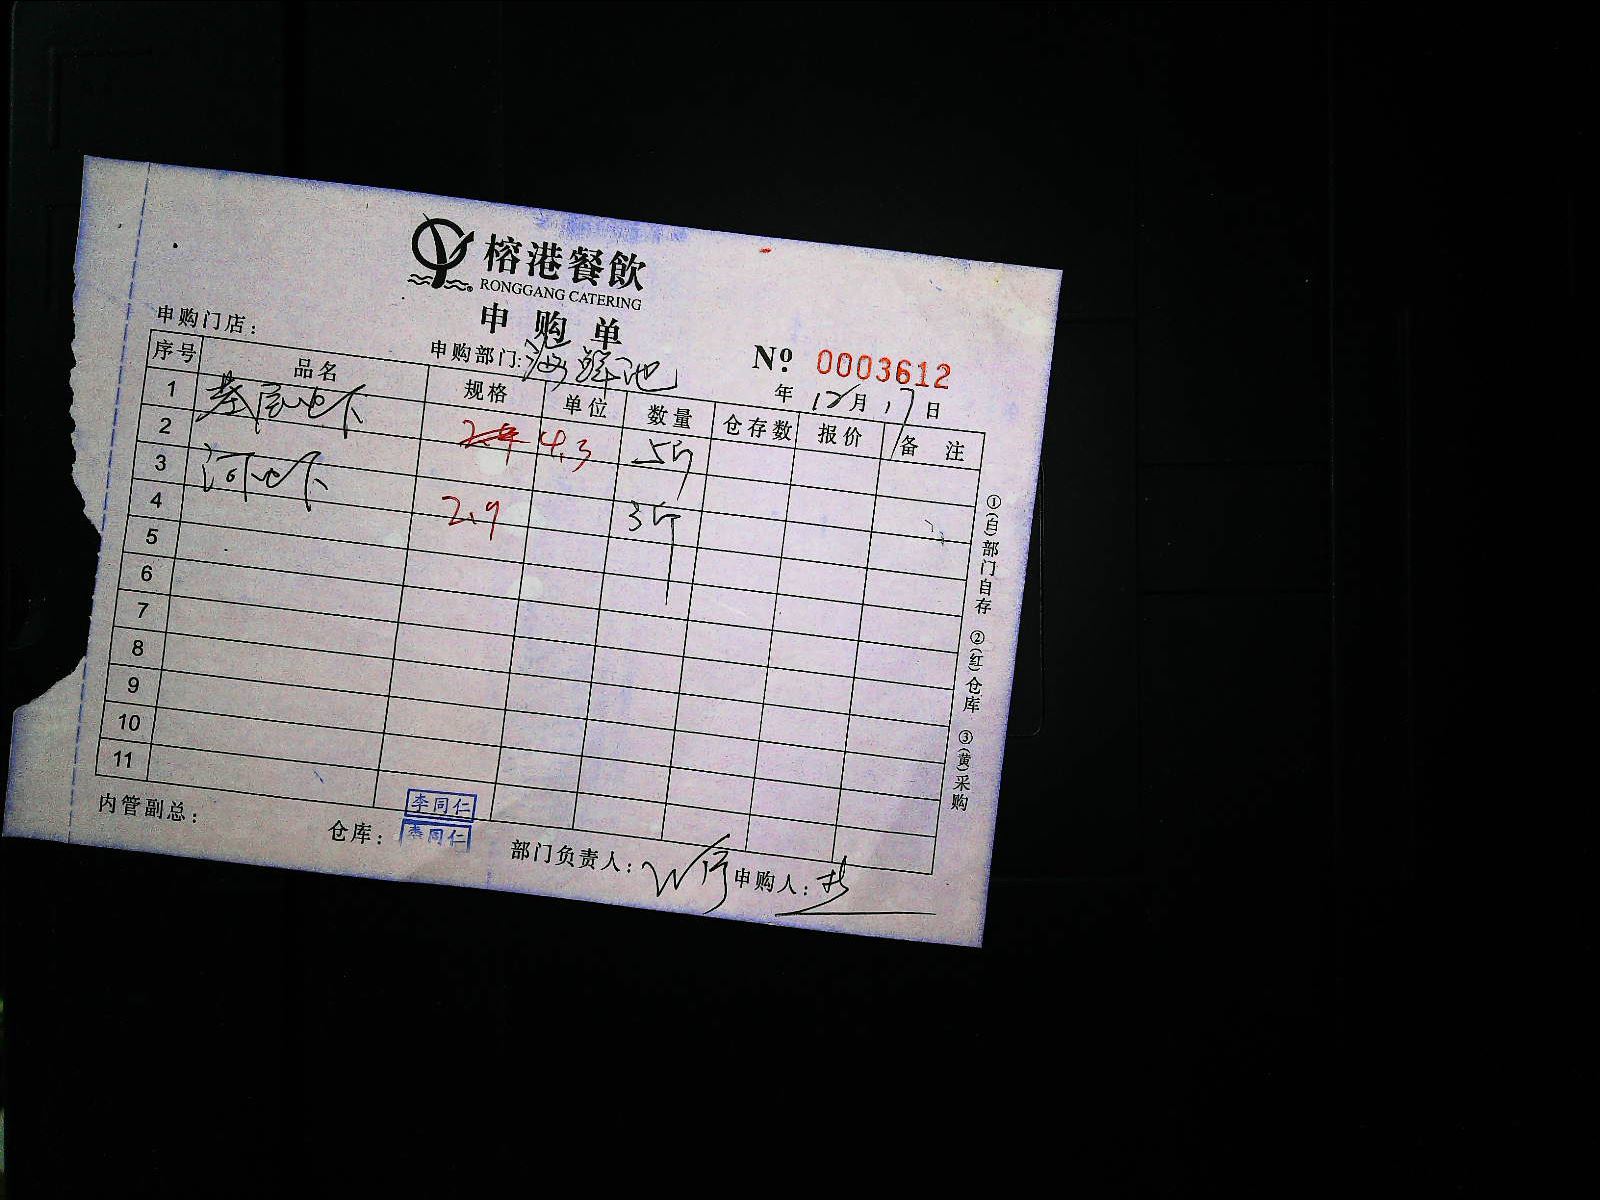 榕港餐飲
RONGGANG CATERING
申购单
申购门店：
申购部门：海鲜池
Nº 0003612
年 12月 17日
序号 品名 规格 单位 数量 仓存数 报价 备注
1 基围虾 4.3 5斤
2
3 河虾 2.9 3斤
4
5
6
7
8
9
10
11
①(白)部门自存 ②(红)仓库 ③(黄)采购
李同仁
内管副总： 仓库：李同仁 部门负责人： 申购人：